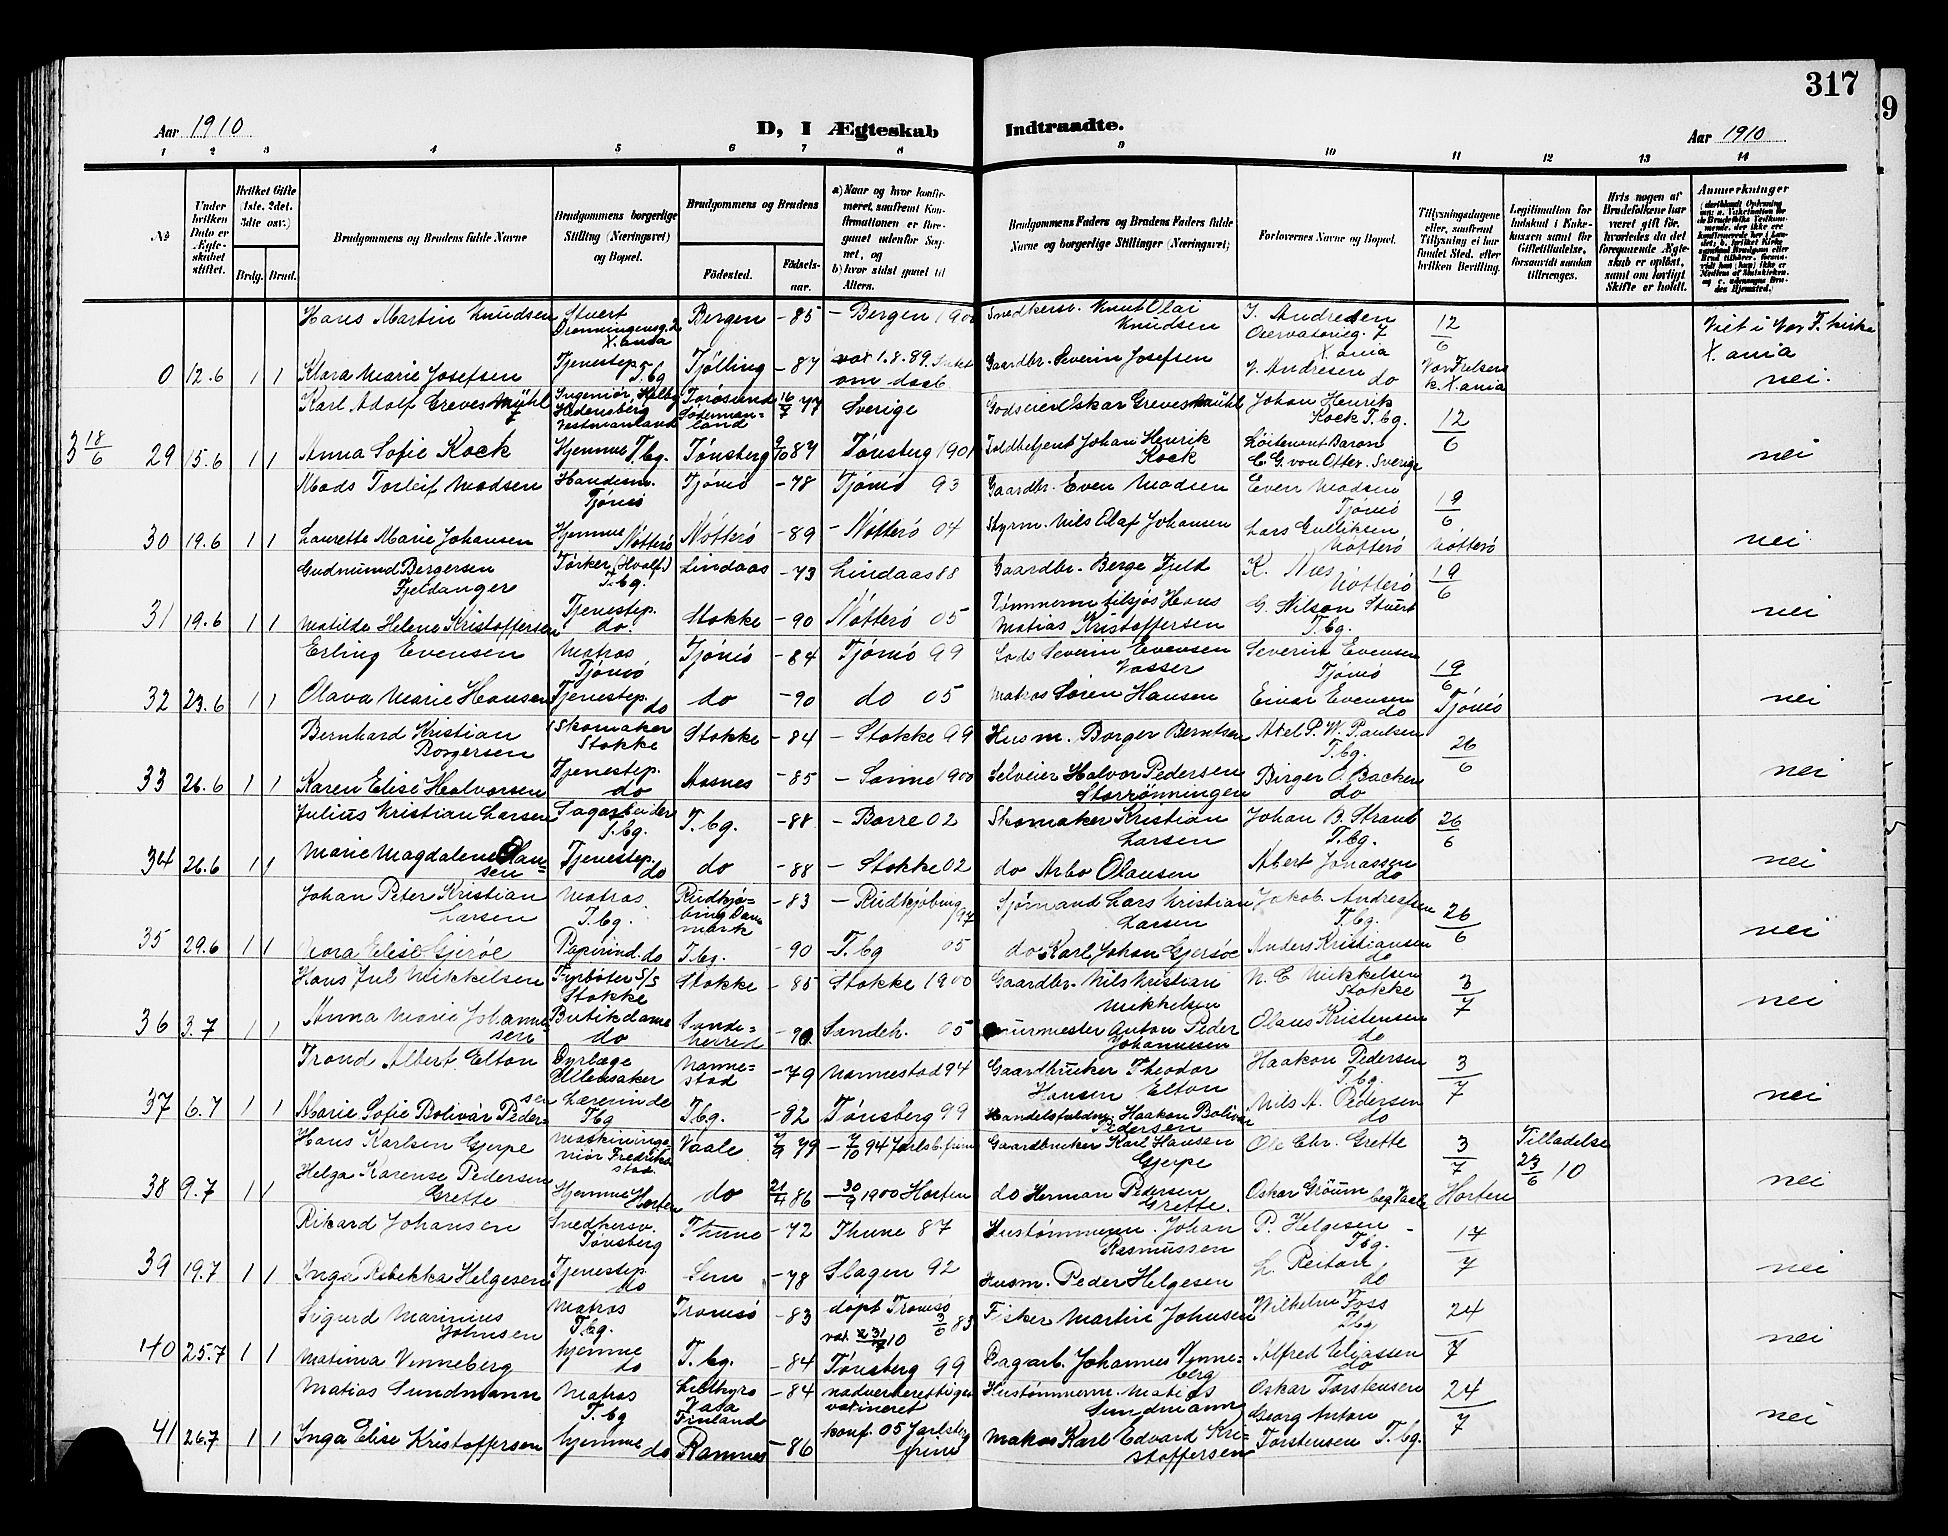 317
9
Aar 1910
D, I Ægteskab Indtraadte.
Aar 1910
1 2 3 4 5 6 7 8 9 10 11 12 13 14
No
Under hvilken Dato er Ægteskabet stiftet.
Hvilket Gifte (1ste. 2det. 3die osv.)
Brdg. Brud.
Brudgommens og Brudens fulde Navne
Brudgommens borgerlige Stilling (Næringsvei) og Bopæl.
Brudgommens og Brudens
Fødested.
Fødselsaar.
a) Naar og hvor konfirmeret, saafremt Konfirmationen er foregaaet udenfor Sognet, og
b) hvor sidst gaaet til Alters.
Brudgommens Faders og Brudens Faders fulde Navne og borgerlige Stillinger (Næringsvei)
Forlovernes Navne og Bopæl.
Tillysningsdagene eller, saafremt Tillysning ei har fundet Sted, efter hvilken Bevilling.
Legitimation for Indskud i Enkekassen samt for Giftetilladelse, forsaavidt saadan tiltrænges.
Hvis nogen af Brudefolkene har været gift før, hvorledes da det foregaaende Ægteskab er opløst, samt om lovligt Skifte er holdt.
Anmærkninger
Hans Martin Knudsen Stuert Dronningensg. 2 X.ania Bergen - 85 - Bergen 1900 Snedkersv. Knut Olai Knudsen J. Andresen Observatorieg. 7 X.ania 12/6 Viet i Vor F. kirke X.ania
0 12.6 1 1 Klara Marie Josefsen Tjenestep. T.bg Tjølling - 87 1.8.89 om daab Gaardbr. Severin Josefsen V. Andresen do Vor Frelsers k. X.ania nei.
Karl Adolf Grevesmühl Ingeniør Vestmanland Torösund Södermanland 16/7 77 Sverige Godseier Oskar Grevesmühl Johan Henrik Kock T.bg. 12/6
3 18/6 29 15.6 1 1 Anna Sofie Kock Hjemme T.bg. Tønsberg 9/10 87 Tønsberg 1901 Toldbetjent Johan Henrik Kock Löitenant Baron C. G. von Otter. Sverige nei
Mads Torleif Madsen Handelsm. Tjømø Tjømø - 78 Tjømø 93 Gaardbr. Even Madsen Even Madsen Tjømø 19/6
30 19.6 1 1 Laurette Marie Johansen Hjemme Nøtterø Nøtterø - 89 - Nøtterø 04 Styrm. Nils Olaf Johansen Lars Gulliksen Nøtterø Nøtterø nei
Gudmund Bergersen Fjeldanger Tørker (Hvalf.) T.bg. Lindaas - 73 Lindaas 88 Gaardbr. Berge Fjeld K. Næs Nøtterø 19/6
31 19.6 1 1 Matilde Helene Kristoffersen Tjenestep. do. Stokke - 90 Nøtterø 05 Tømmerm tilsjøs Hans Matias Kristoffersen G. Nilson Stuert T.bg. nei
Erling Evensen Matros Tjømø Tjømø - 84 Tjømø 99 Lods Severin Evensen Vasser Severin Evensen Tjømø 19/6
32 23.6 1 1 Olava Marie Hansen Tjenestep. do do - 90 do 05 Matros Søren Hansen Einar Evensen do Tjømø nei
Bernhard Kristian Borgersen Skomaker Stokke Stokke - 84 - Stokke 99 Husm. Borger Berntsen Axel P. W. Paulsen T.bg. 26/6
33 26.6 1 1 Karen Elise Halvorsen Tjenestep. do Aasnes - 85 - Sanne 1900 Selveier Halvor Pedersen Storrønningen Birger O. Backen do nei
Julius Kristian Larsen Sagarbeider T.bg. T.bg. - 88 - Borre 02 Skomaker Kristian Larsen Johan B. Strant T.bg. 26/6
34 26.6 1 1 Marie Magdalene Olausen Tjenestep. do do - 88 - Stokke 02 do Arbo Olausen Albert Jonassen do nei
Johan Peter Kristian Larsen Matros. T.bg. Rudkjøbing Danmark - 83 - Rudkjøbing /97 Sjømand Lars Kristian Larsen Jakob Andresen T.bg. 26/6
35 29.6 1 1 Elise Gjerøe Papirind. do T.bg. - 90 - T.bg 05 do Karl Johan Gjersøe Anders Kristiansen do nei
Hans Jul Mikkelsen Fyrbøter S/S Stokke Stokke - 85 Stokke 1900 Gaardbr. Nils Kristian Mikkelsen N. E. Mikkelsen Stokke 3/7
36 3.7 1 1 Anna Marie Johannesen Butikdame do Sandeherred - 90 Sandeh. 05 Murmester Anton Peder Johannesen Olaus Kristensen do nei
Trond Albert Elton Dyrlæge Ullensaker Nannestad - 79 Nannestad 94 Gaardbruker Theodor Hansen Elton Haakon Pedersen T.bg. 3/7
37 6.7 1 1 Marie Sofie Bolivár Pedersen Lærerinde Tbg T.bg. - 82 Tønsberg 99 Handelsfuldm. Haakon Bolivar Pedersen Nils A. Pedersen do nei
Hans Karlsen Gjerpe Maskiningeniør Fredrikstad Vaale 7/9 79 - 7/10 94 Jarlsb. frim Gaardbruker Karl Hansen Gjerpe Ole Chr. Grette 3/7 Tilladelse 23/6 10
38 9.7 1 1 Helga Karense Pedersen Grette Hjemme Horten do 21/4 86 - 30/9 1900 Horten do Herman Pedersen Grette. Oskar Grøum begge Vaale Horten nei
Rikard Johansen Snedkersv. Tønsberg Thune - 72 Thune 87 Hustømmerm. Johan Rasmussen P. Helgesen Tbg. 17/7
39 19.7 1 1 Inga Rebekka Helgesen Tjenestep. do Sem - 78 Slagen 92 Husm. Peder Helgesen L. Reitan do nei
Sigurd Marinius Johnsen Matros T.bg. Tromsø - 83 døpt Tromsø 3/6 83 Fisker Martin Johnsen Wilhelm Foss Tbg 24/7
40 25.7 1 1 Matinia Venneberg hjemme do T.bg. - 84 Tønsberg 99 Dagarb. Johannes Venneberg Alfred Eliassen do nei
Matias Sundmann Matros T.bg Vasa Finland - 84 nadverberettiget vaksineret Hustømmerm. Matias Sundmann Oskar Torstensen 24/7
41 26.7 1 1 Inga Elise Kristoffersen hjemme do Ramnes - 86 konf. 05 Jarlsberg frim Matros Karl Edvard Kristoffersen Georg Anton Torstensen T.bg. nei